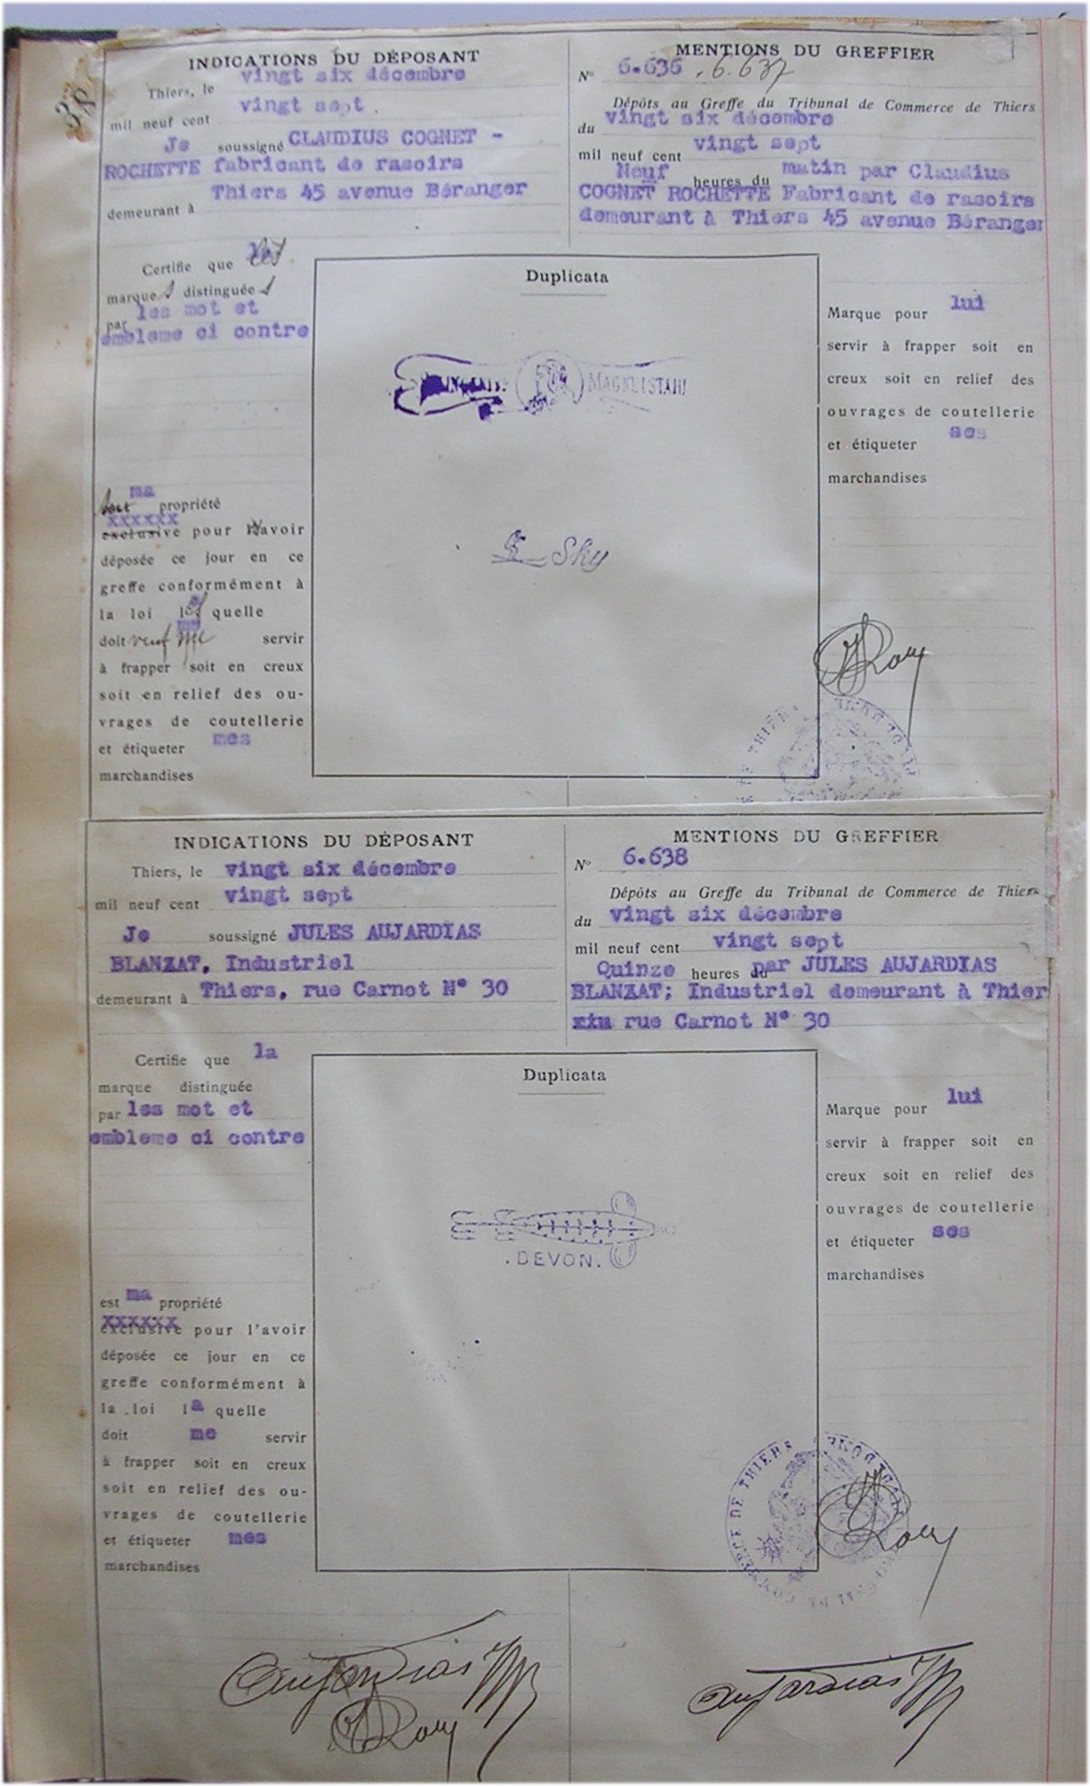 INDICATIONS DU DÉPOSANT
Thiers, le vingt six décembre
mil neuf cent vingt sept.
Je soussigné CLAUDIUS COGNET -
ROCHETTE fabricant de rasoirs
Thiers 45 avenue Béranger
demeurant à
MENTIONS DU GREFFIER
N° 6.636 . 6.637
Dépôts au Greffe du Tribunal de Commerce de Thiers
du vingt six décembre
mil neuf cent vingt sept
Neuf heures du matin par Claudius
COGNET ROCHETTE Fabricant de rasoirs
demeurant à Thiers 45 avenue Béranger
Certifie que les
marques distinguées
par les mot et
embleme ci contre
ma
propriété
xxxxxx
exclusive pour l'avoir
déposée ce jour en ce
greffe conformément à
la loi quelle
doit servir
à frapper soit en creux
soit en relief des ou-
vrages de coutellerie
et étiqueter mes
marchandises
Duplicata
MAGNETSTAHL
Sky
Marque pour lui
servir à frapper soit en
creux soit en relief des
ouvrages de coutellerie
et étiqueter ses
marchandises
DE THIERS
INDICATIONS DU DÉPOSANT
Thiers, le vingt six décembre
mil neuf cent vingt sept
Je soussigné JULES AUJARDIAS
BLANZAT, Industriel
demeurant à Thiers, rue Carnot N° 30
MENTIONS DU GREFFIER
N° 6.638
Dépôts au Greffe du Tribunal de Commerce de Thiers
du vingt six décembre
mil neuf cent vingt sept
Quinze heures du par JULES AUJARDIAS
BLANZAT; Industriel demeurant à Thier
xxx rue Carnot N° 30
Certifie que la
marque distinguée
par les mot et
embleme ci contre
est ma propriété
xxxxxx
exclusive pour l'avoir
déposée ce jour en ce
greffe conformément à
la loi la quelle
doit me servir
à frapper soit en creux
soit en relief des ou-
vrages de coutellerie
et étiqueter mes
marchandises
Duplicata
.DEVON.
Marque pour lui
servir à frapper soit en
creux soit en relief des
ouvrages de coutellerie
et étiqueter ses
marchandises
COMMERCE DE THIERS
Aujardias
Aujardias